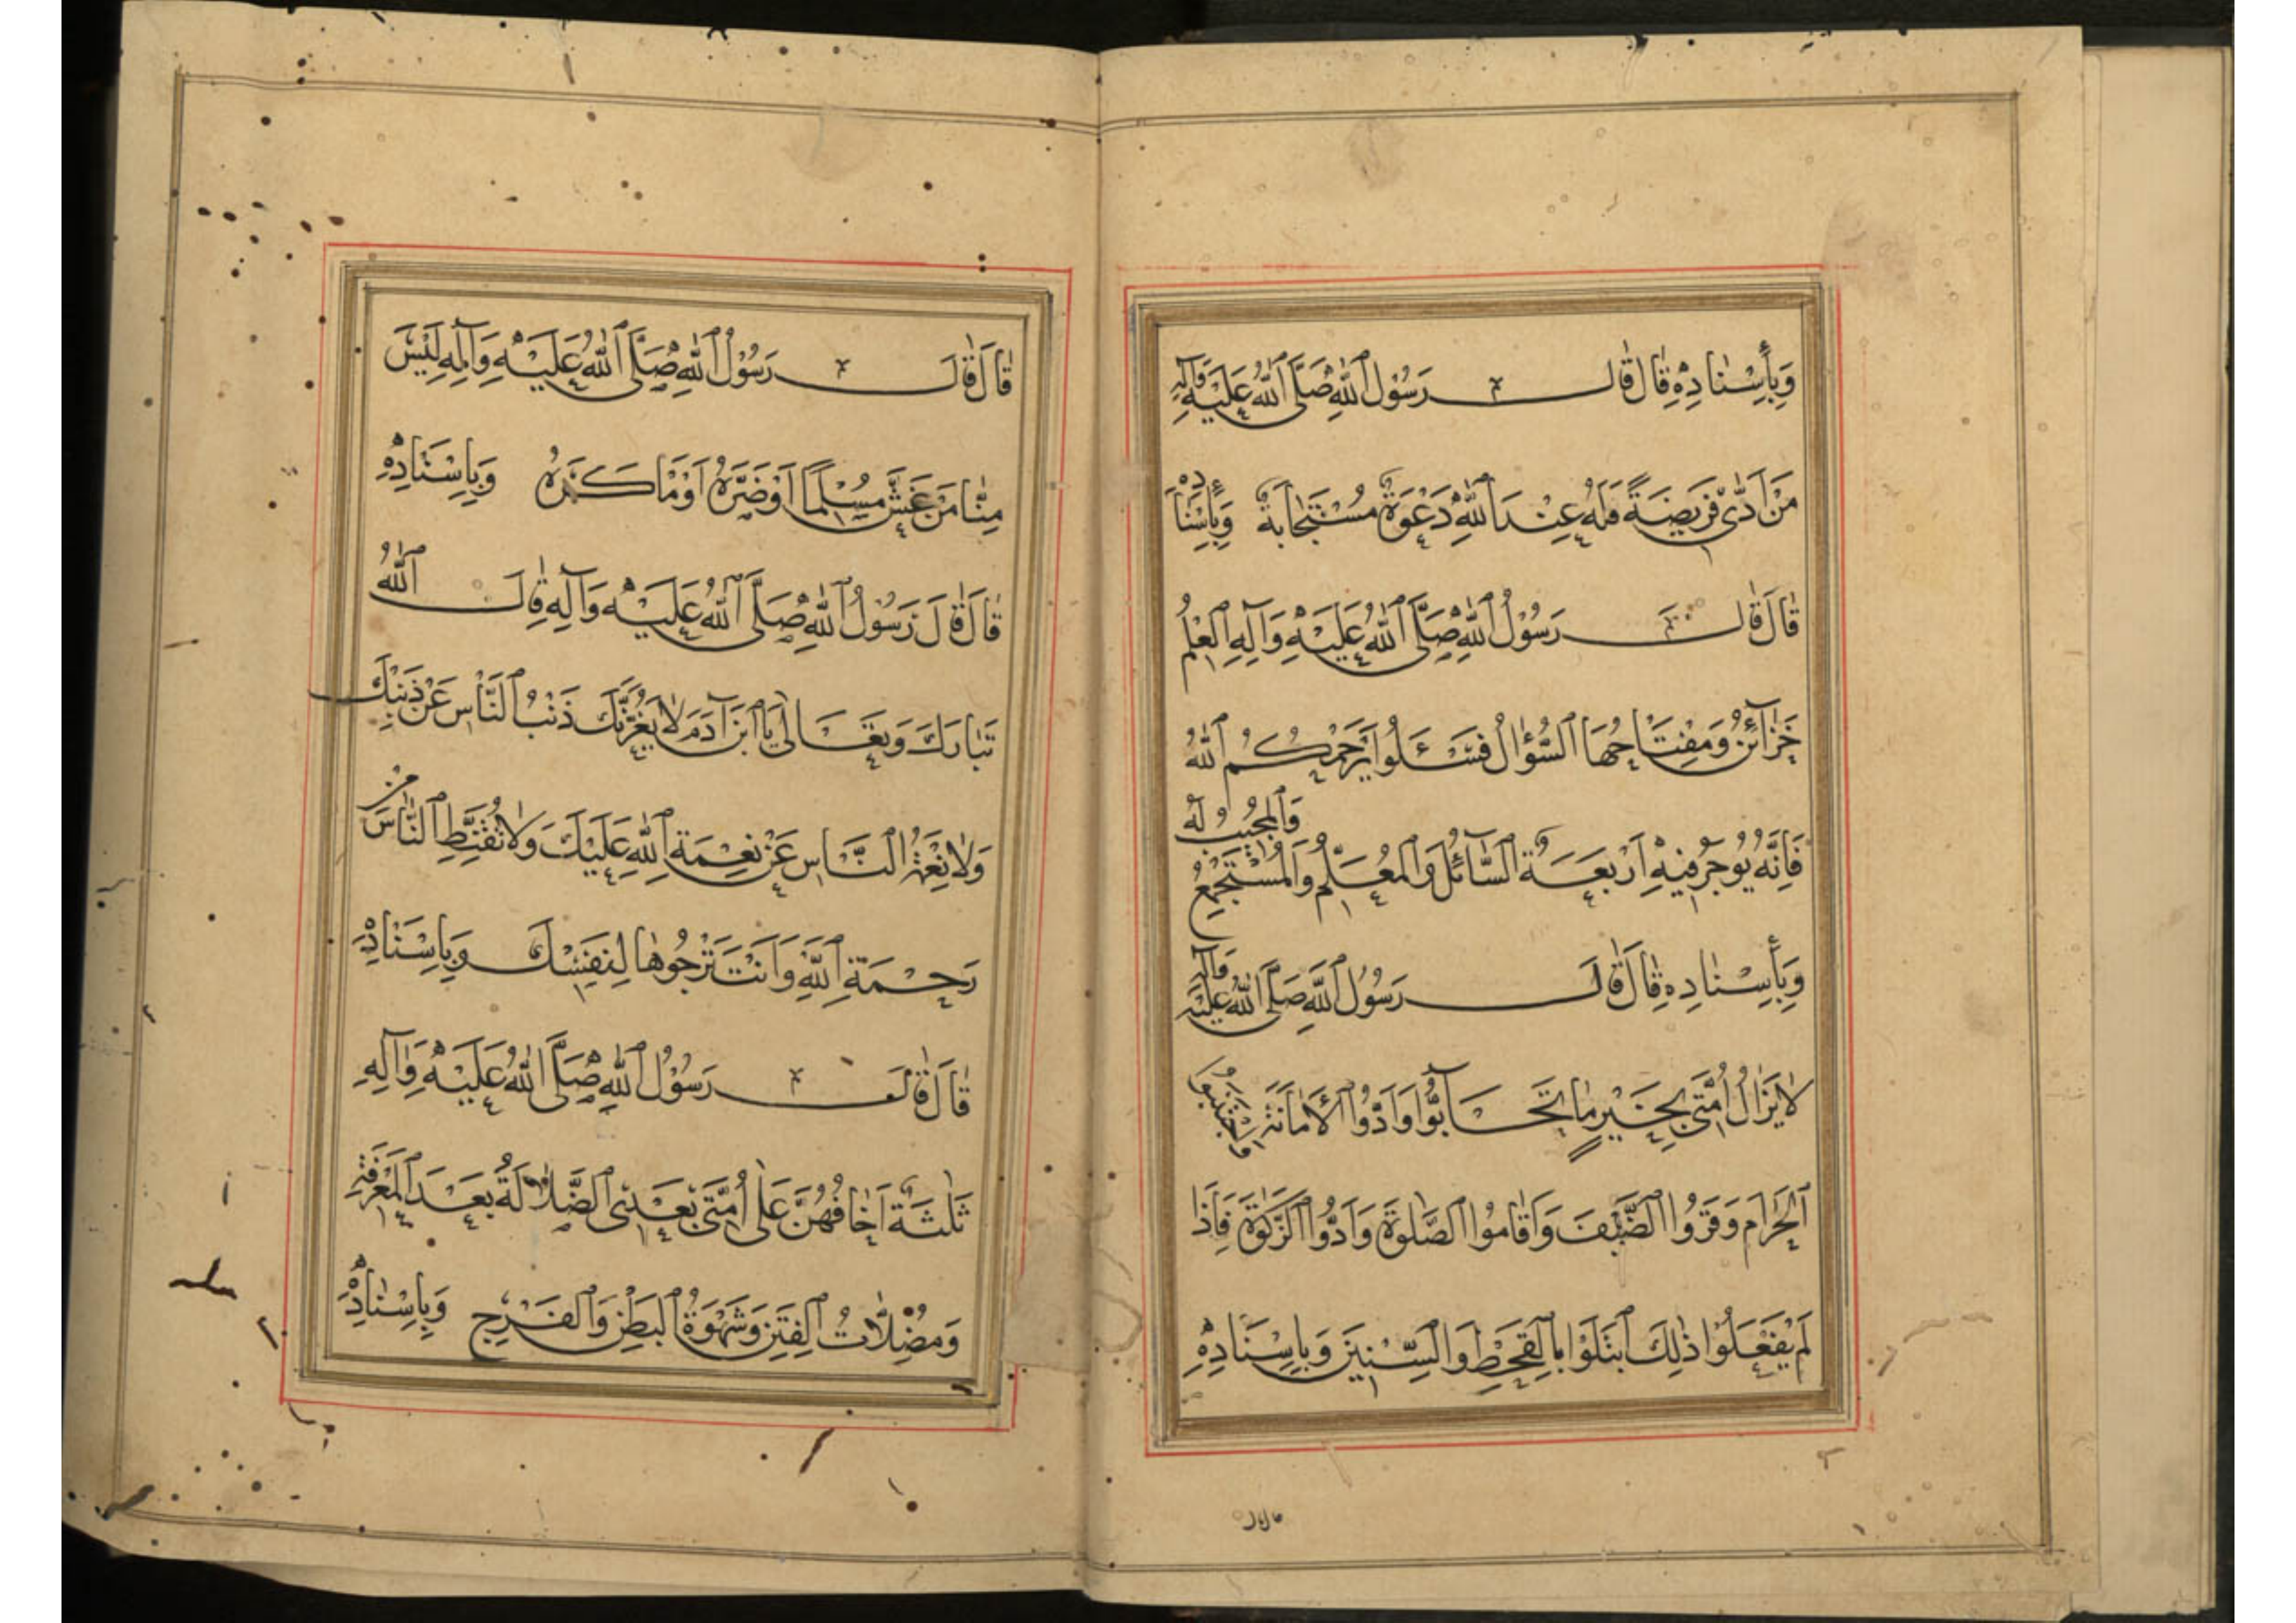 وَبِأِسْنٰادِهِ قٰالَ قٰالَ رَسُوْلُ ٱللّٰهِ صَلَّى ٱللّٰهُ عَلَيْهِ وَآلِهِ
مَنْ اَدّٰى فَرِيضَةً فَلَهُ عِنْدَ ٱللّٰهِ دَعْوَةٌ مُسْتَجٰابَةٌ وَبِإِسْنَادِهِ
قٰالَ قٰالَ رَسُوْلُ ٱللّٰهِ صَلَّى ٱللّٰهُ عَلَيْهِ وَآلِهِ ٱلعِلْمُ
خَزٰآئِنُ وَمِفْتَاحُهَا ٱلسُّؤٰالُ فَسْئَلُوا يَرْحَمُكُمُ ٱللّٰهُ
فَاِنَّهُ يُوجَرُ فِيهِ اَرْبَعَةٌ ٱلسّٰآئِلُ وَٱلمُعَلِّمُ وَٱلمُسْتَمِعُ وَٱلمُجِيبُ لَهُ
وَبِأِسْنٰادِهِ قٰالَ قٰالَ رَسُوْلُ ٱللّٰهِ صَلَّى ٱللّٰهُ عَلَيْهِ وَآلِهِ
لاٰ يَزٰالُ اُمَّتِى بِخَيْرٍ مٰا تَحَآبُّوا وَاَدَّوُا ٱلاَمٰانَةَ وَاجْتَنَبُوا
ٱلحَرٰامَ وَقَرَوُا ٱلضَّيْفَ وَاَقٰامُوا ٱلصَّلٰوةَ وَاَدَّوُا ٱلزَّكٰوةَ فَاِذَا
لَمْ يَفْعَلُوْا ذٰلِكَ ٱبْتَلَوْا بِٱلقَحْطِ وَٱلسِّنِينَ وَبِاِسْنَادِهِ
قٰالَ قٰالَ رَسُوْلُ ٱللّٰهِ صَلَّى ٱللّٰهُ عَلَيْهِ وَآلِهِ لَيْسَ
مِنّٰا مَنْ غَشَّ مُسْلِمًا اَوْ ضَرَّهُ اَوْ مٰاكَرَهُ وَبِاِسْنَادِهِ
قٰالَ قٰالَ رَسُوْلُ ٱللّٰهِ صَلَّى ٱللّٰهُ عَلَيْهِ وَآلِهِ قٰالَ ٱللّٰهُ
تَبٰارَكَ وَتَعَالٰى يَا ٱبْنَ آدَمَ لاٰ يَغُرَّنَّكَ ذَنْبُ ٱلنّٰاسِ عَنْ ذَنْبِكَ
وَلاٰ نِعْمَةُ ٱلنّٰاسِ عَنْ نِعْمَةِ ٱللّٰهِ عَلَيْكَ وَلاٰ تُقَنِّطِ ٱلنّٰاسَ مِنْ
رَحْمَةِ ٱللّٰهِ وَاَنْتَ تَرْجُوهٰا لِنَفْسِكَ وَبِاِسْنَادِهِ
قٰالَ قٰالَ رَسُوْلُ ٱللّٰهِ صَلَّى ٱللّٰهُ عَلَيْهِ وَآلِهِ
ثَلٰثَةٌ اَخٰافُهُنَّ عَلٰى اُمَّتِى بَعْدِى ٱلضَّلاٰلَةُ بَعْدَ ٱلمَعْرِفَةِ
وَمُضِلاّٰتُ ٱلفِتَنِ وَشَهْوَةُ ٱلبَطْنِ وَٱلفَرْجِ وَبِاِسْنٰادِهِ